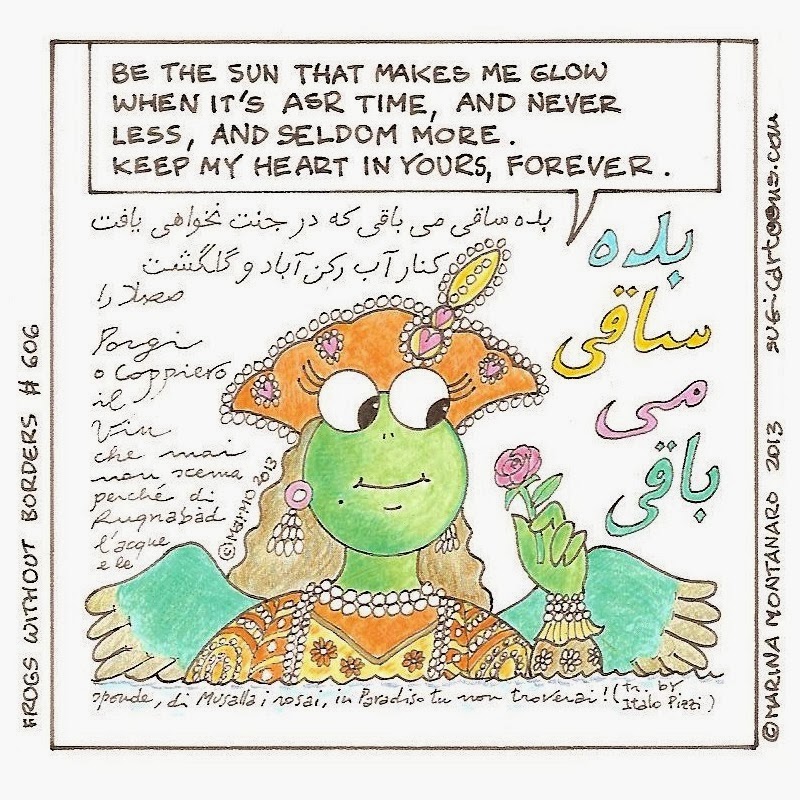 BE THE SUN THAT MAKES ME GLOW
WHEN IT'S ASR TIME, AND NEVER
LESS, AND SELDOM MORE.
KEEP MY HEART IN YOURS, FOREVER.
بده ساقی می باقی که در جنت نخواهی یافت
کنار آب رکن آباد و گلگشت
مصلا را
بده
ساقی
می
باقی
Porgi
o Coppiero
il
Vin
che mai
non scema
perché di
Rugnabàd
l'acque
e le
sponde, di Musalla i rosai, in Paradiso tu non troverai! (tr. by
Italo Pizzi)
© MariMO 2013
FROGS WITHOUT BORDERS # 606
© MARINA MONTANARO 2013 sugicartoons.com